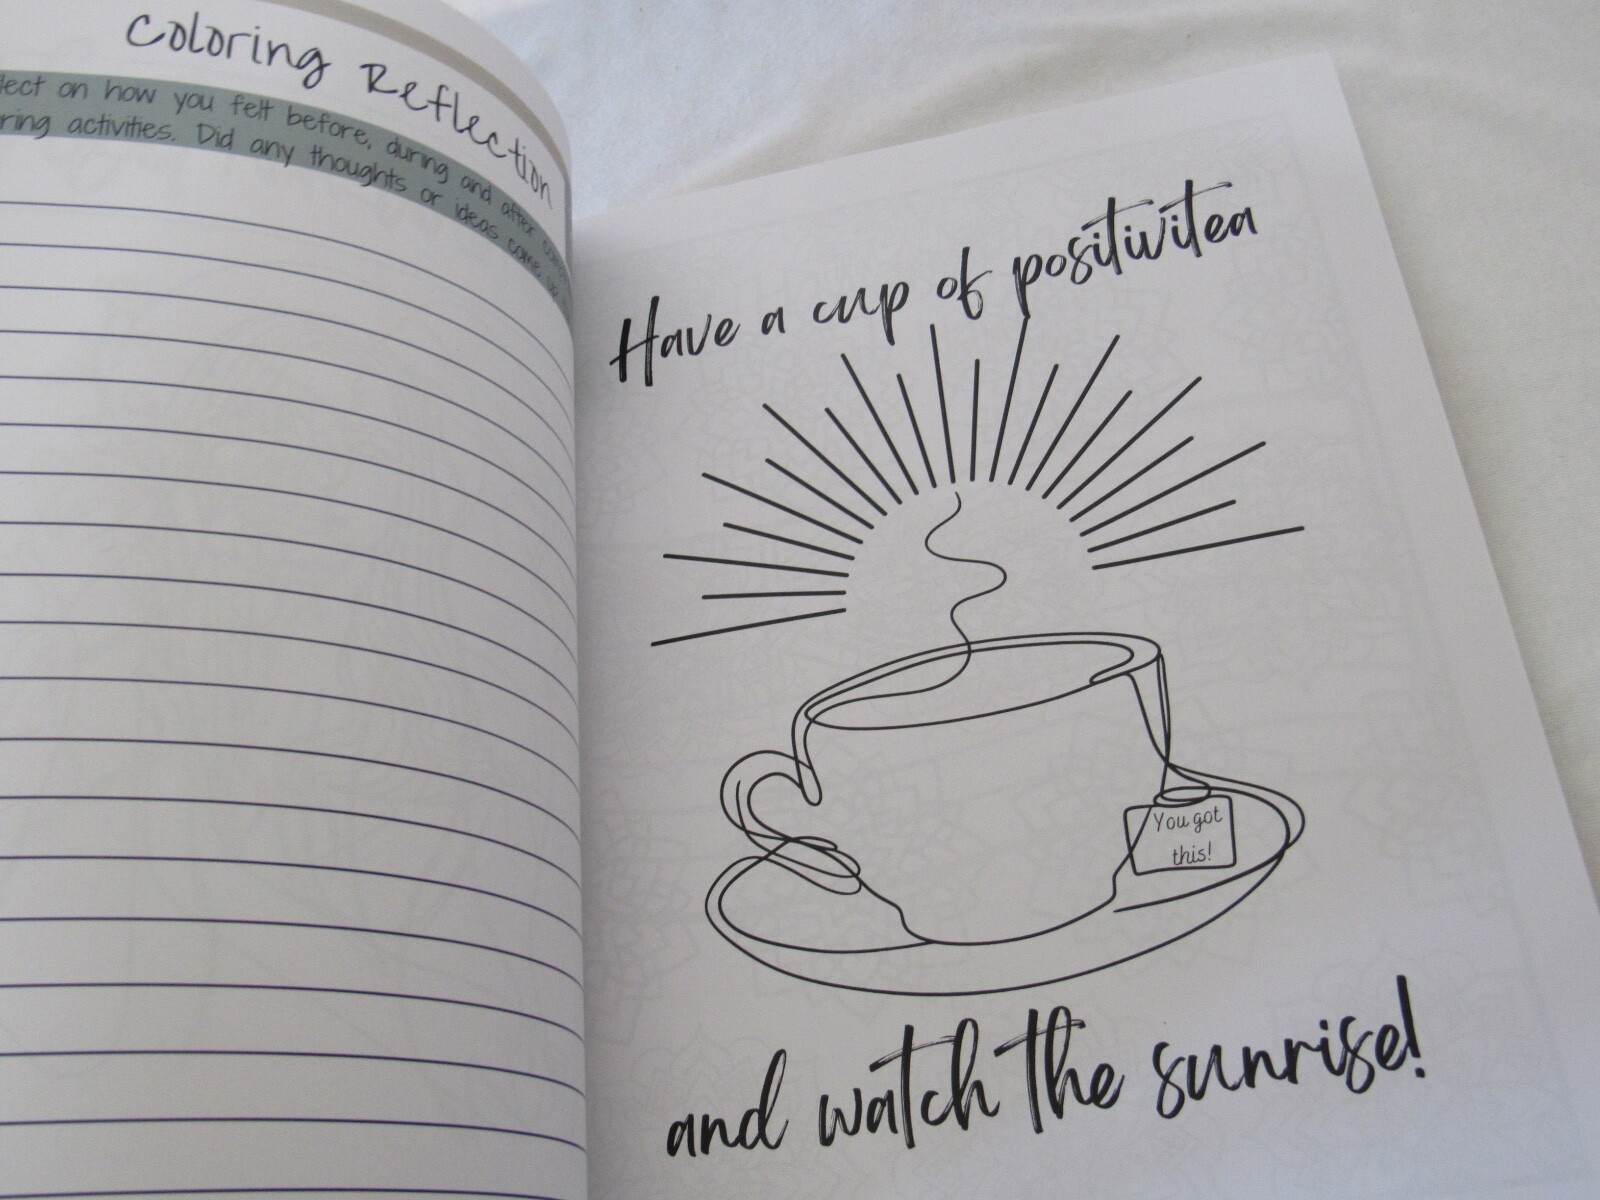 Coloring Reflection
lect on how you felt before, during and after
ring activities. Did any thoughts or ideas come up
Have a cup of positivitea
You got
this!
and watch the sunrise!